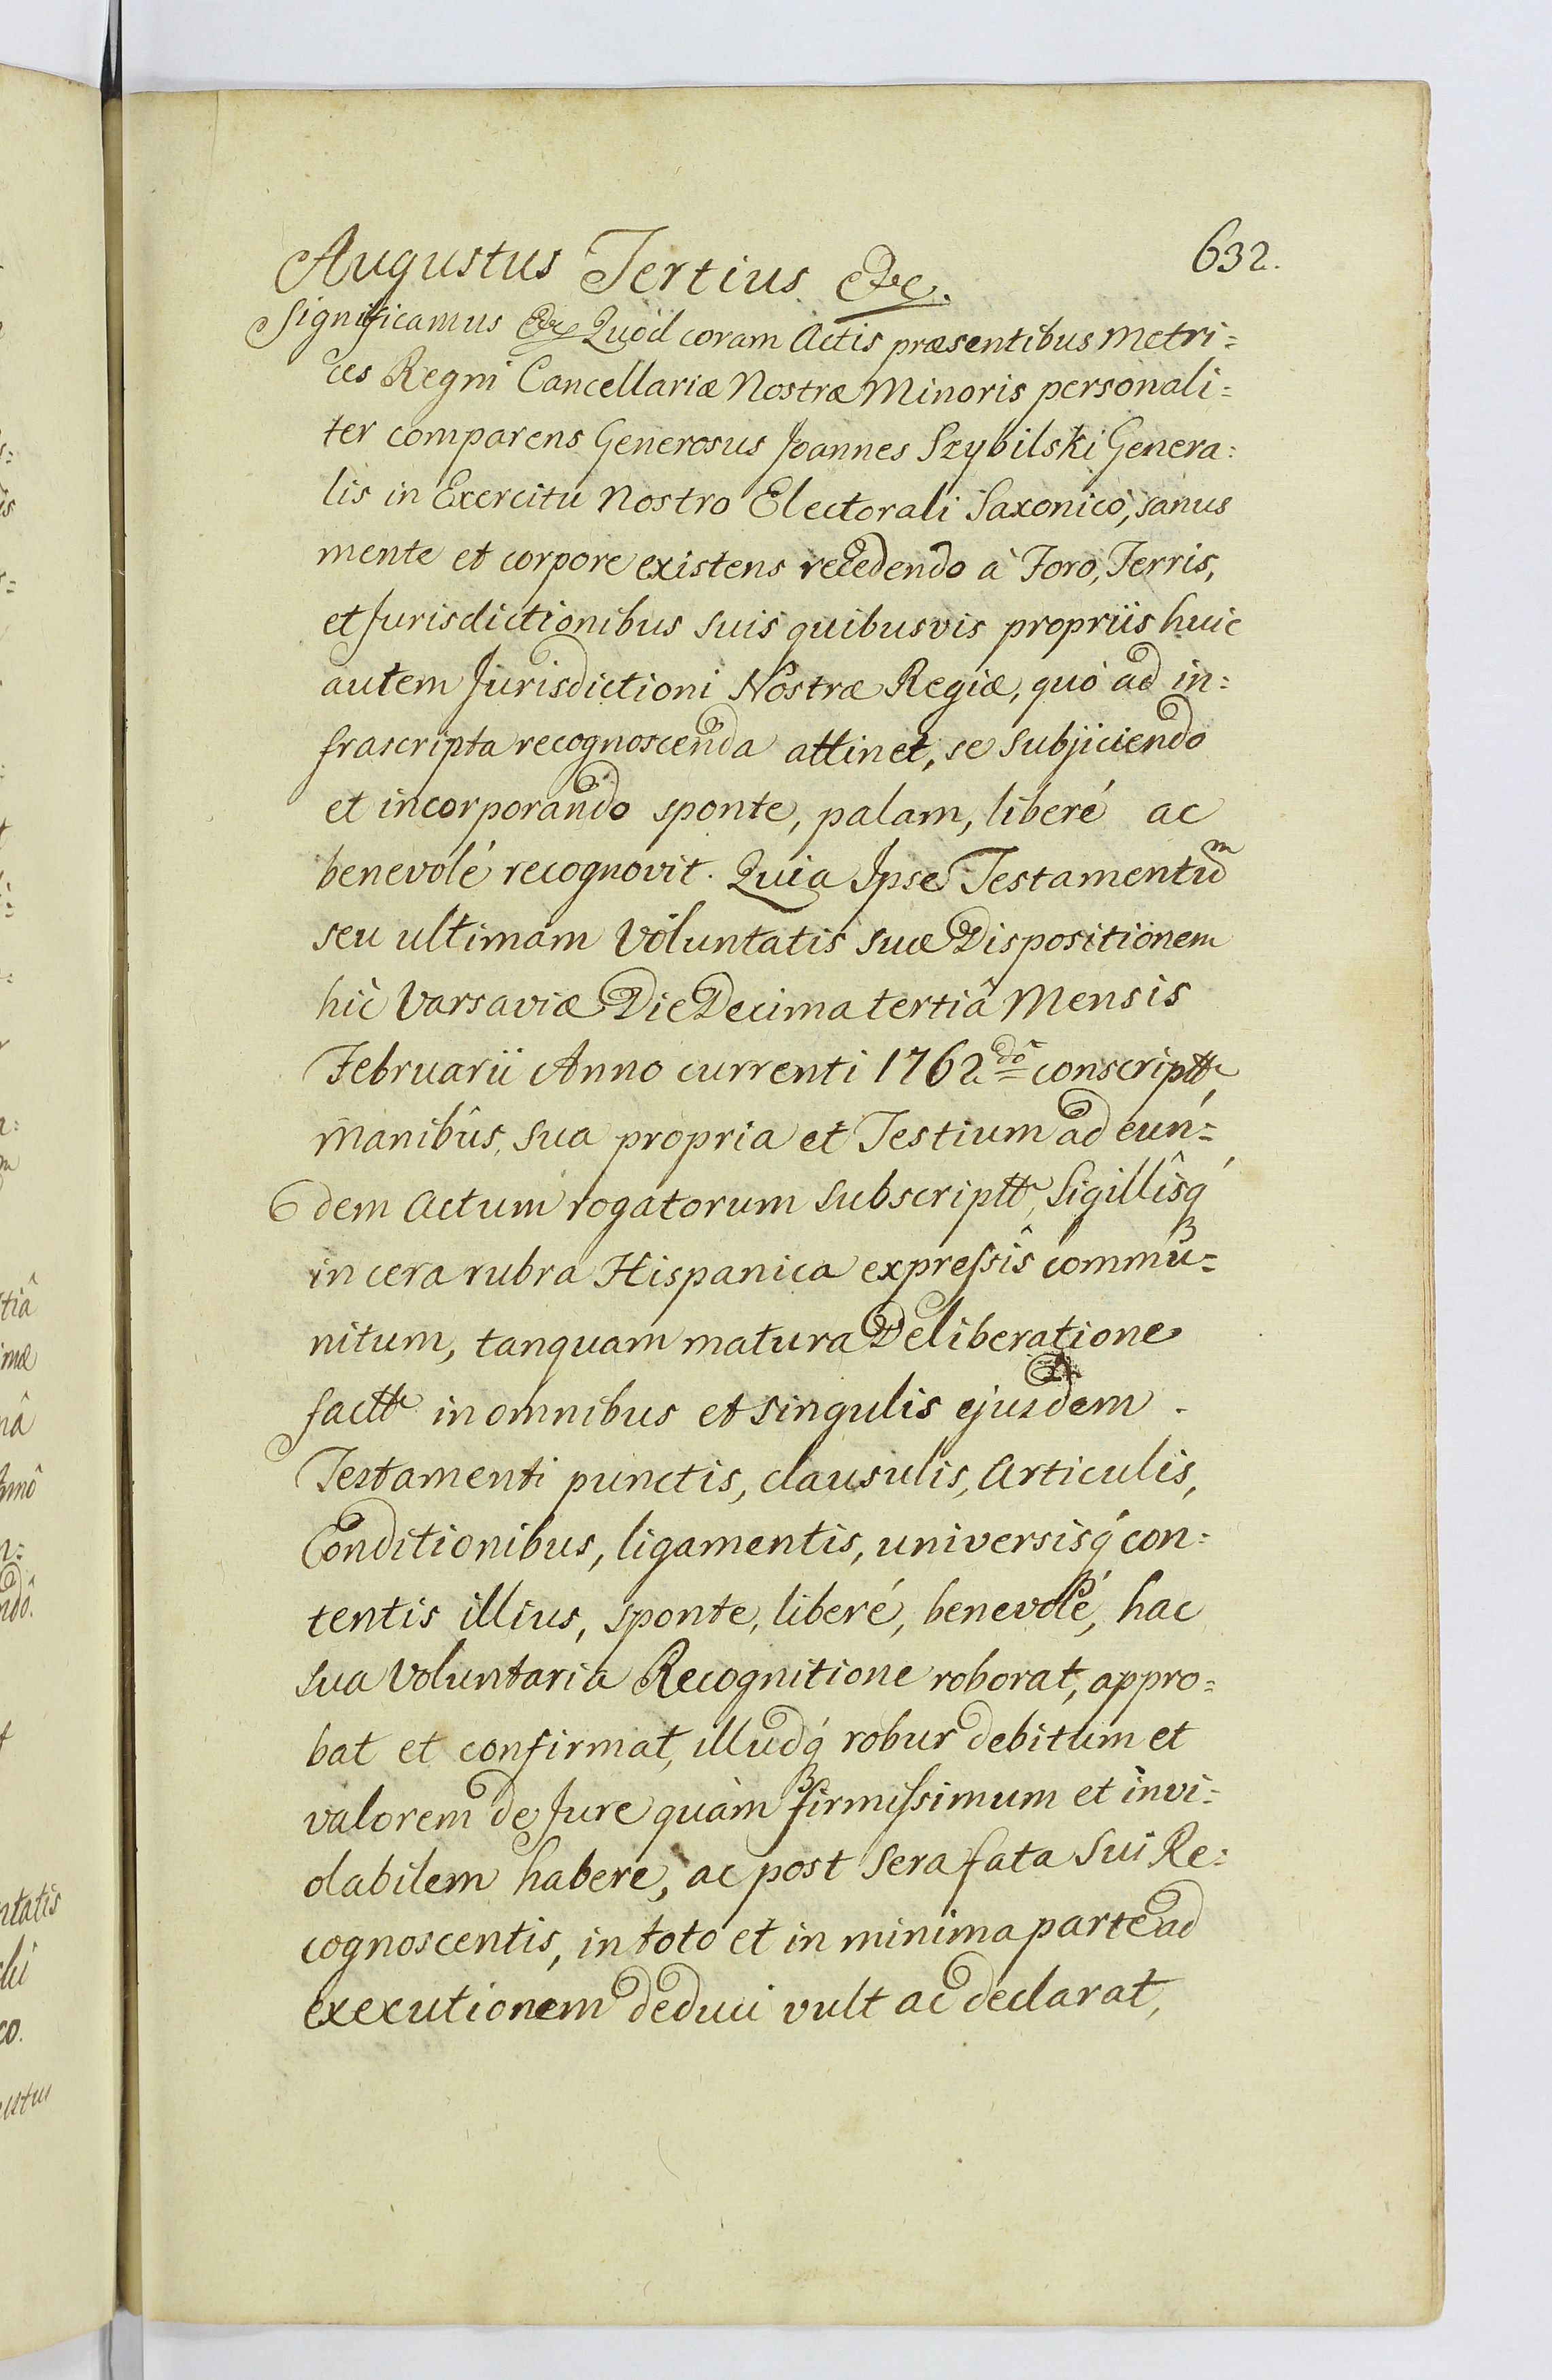 632.
Augustus Tertius &c.
Significamus &c Quód coram Actis præsentibus Metri=
ces Regni Cancellariæ Nostræ Minoris personali=
ter comparens Generosus Joannes Szybilski Genera=
lis in Exercitu Nostro Electorali Saxonico, sanus
mente et corpore existens recedendo à Foro, Terris,
et Jurisdictionibus suis quibusvis propriis huic
autem Jurisdictioni Nostræ Regiæ, quó ad in=
frascripta recognoscenda attinet, se subjiciendo
et incorporando sponte, palam, liberé ac
benevolé recognovit. Quia Ipse Testamentum
seu ultimam Voluntatis suæ Dispositionem
hic Varsaviæ Die Decima tertiâ Mensis
Februarii Anno currenti 1762do conscriptt,
Manibûs, sua propria et Testium ad eun=
dem Actum rogatorum subscriptt, Sigillîsq́
in cera rubra Hispanica expressîs commu=
nitum, tanquam matura Deliberatione
factt in omnibus et singulis ejusdem
Testamenti punctis, clausulis, Articulis,
Conditionibus, ligamentis, universisq́ con=
tentis illius, sponte, liberé, benevolé, hac
sua Voluntaria Recognitione roborat, appro=
bat et confirmat, illudq́ robur debitum et
valorem de Jure quàm firmissimum et invi=
olabilem habere, ac post sera fata Sui Re=
cognoscentis, in toto et in minima parte ad
executionem deduci vult ac declarat,